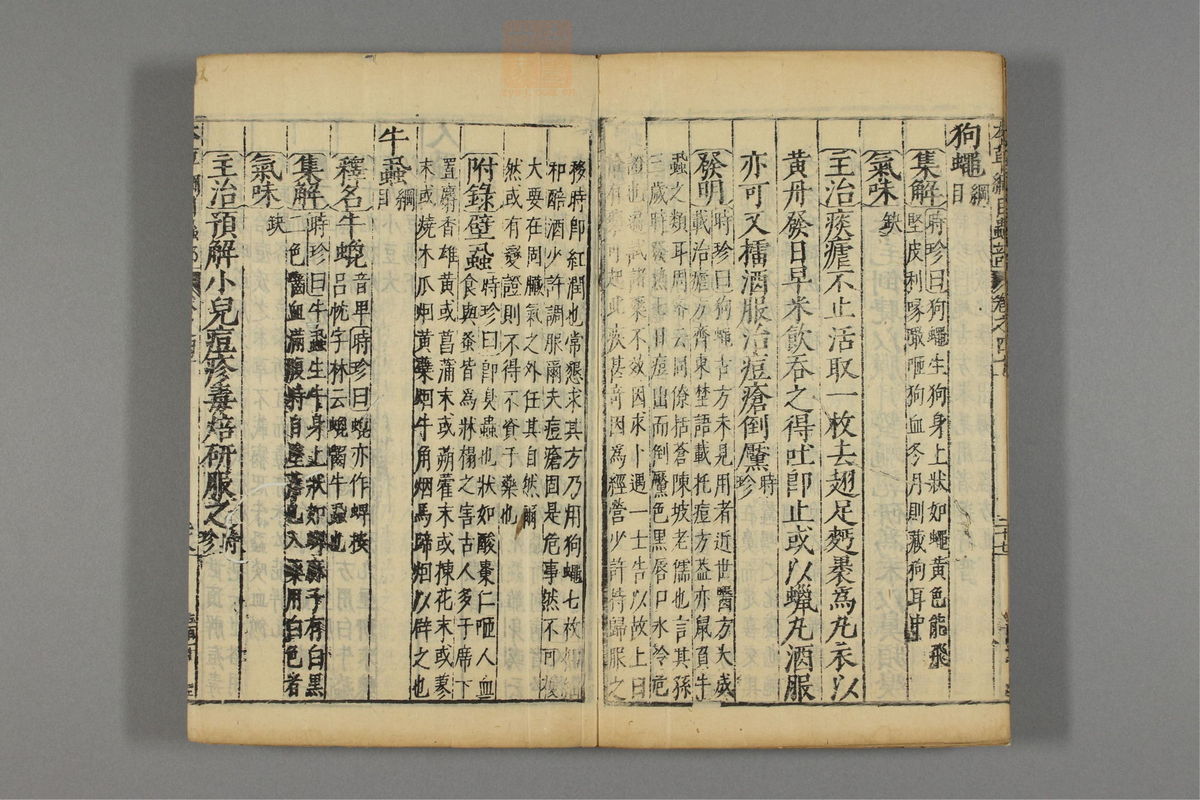 狗蠅綱目
集解時珍曰狗蠅生狗身上狀如蠅黃色能飛
堅皮利喙噉咂狗血冬月則藏狗耳中
氣味缺
主治痰瘧不止活取一枚去翅足麪褁爲丸衣以
黃丹發日早米飲吞之得吐卽止或以蠟丸酒服
亦可又擂酒服治痘瘡倒黶時珍
發明時珍曰狗蠅古方未見用者近世醫方大成
載治瘧方齊東埜語載托痘方葢亦鼠負牛
蝨之類耳周密云同僚括蒼陳坡老儒也言其孫
三歲時發熱七日痘出而倒黶色黑唇口冰冷危
證也遍試諸藥不效因求卜遇一士告以故士曰
此疾甚奇因爲經營少許持歸服之
移時卽紅潤也常懇求其方乃用狗蠅七枚
和醅酒少許調服爾夫痘瘡固是危事然不可擾
大要在固臟氣之外任其自然爾
然或有變證則不得不資于藥也
附錄壁蝨時珍曰卽臭蟲也狀如酸棗仁咂人血
食與蚤皆爲牀榻之害古人多于席下
置麝香雄黃或菖蒲末或蒴藿末或楝花末或蓼
末或燒木瓜烟黃蘗烟牛角烟馬蹄烟以辟之也
牛蝨綱目
釋名牛螕音卑時珍曰螕亦作蜱按
呂忱字林云螕嚙牛蝨也
集解時珍曰牛蝨生牛身上狀如蓖麻子有白黑
二色嚙血滿腹時自墜落也入藥用白色者
氣味缺
主治預解小兒痘疹毒焙研服之時珍